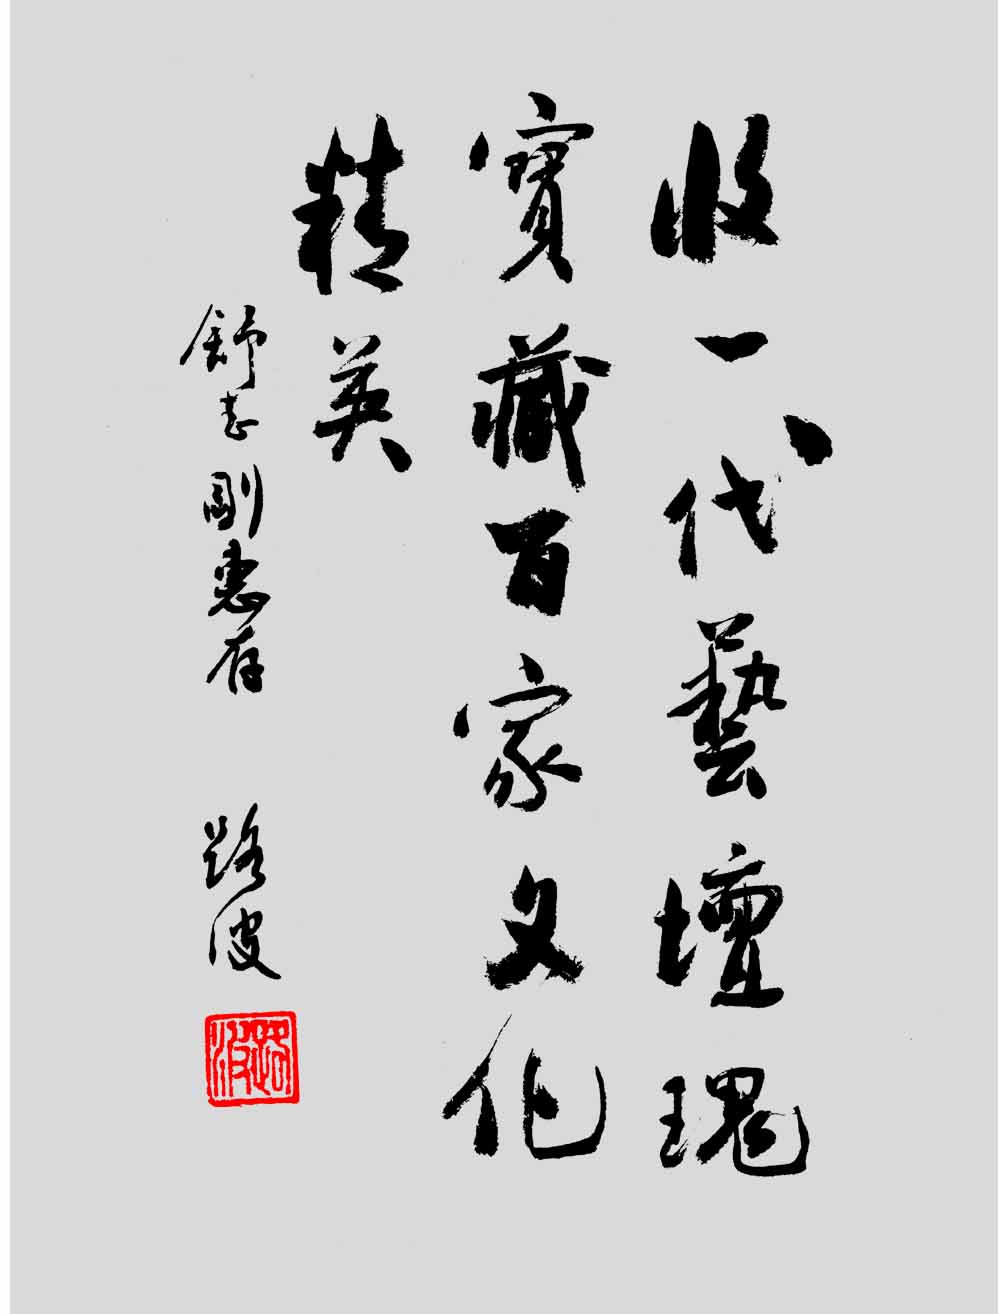 收一代藝壇瑰
寶藏百家文化
精英
舒志剛惠存
路波
路波